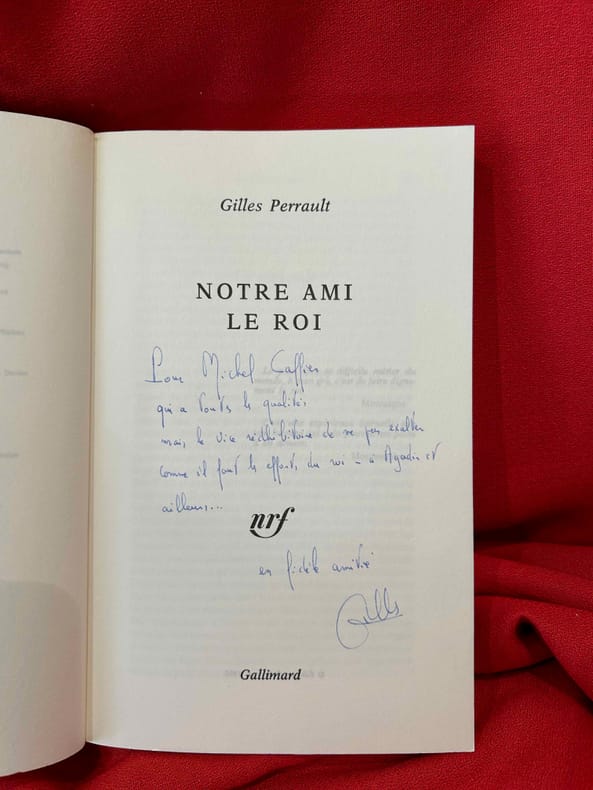 Gilles Perrault
NOTRE AMI
LE ROI
Pour Michel Caffier
qui a toutes les qualités
mais le vice rédhibitoire de ne pas exalter
comme il faut les efforts du roi – à Agadir et
ailleurs...
nrf
en fidèle amitié
Gilles
Gallimard